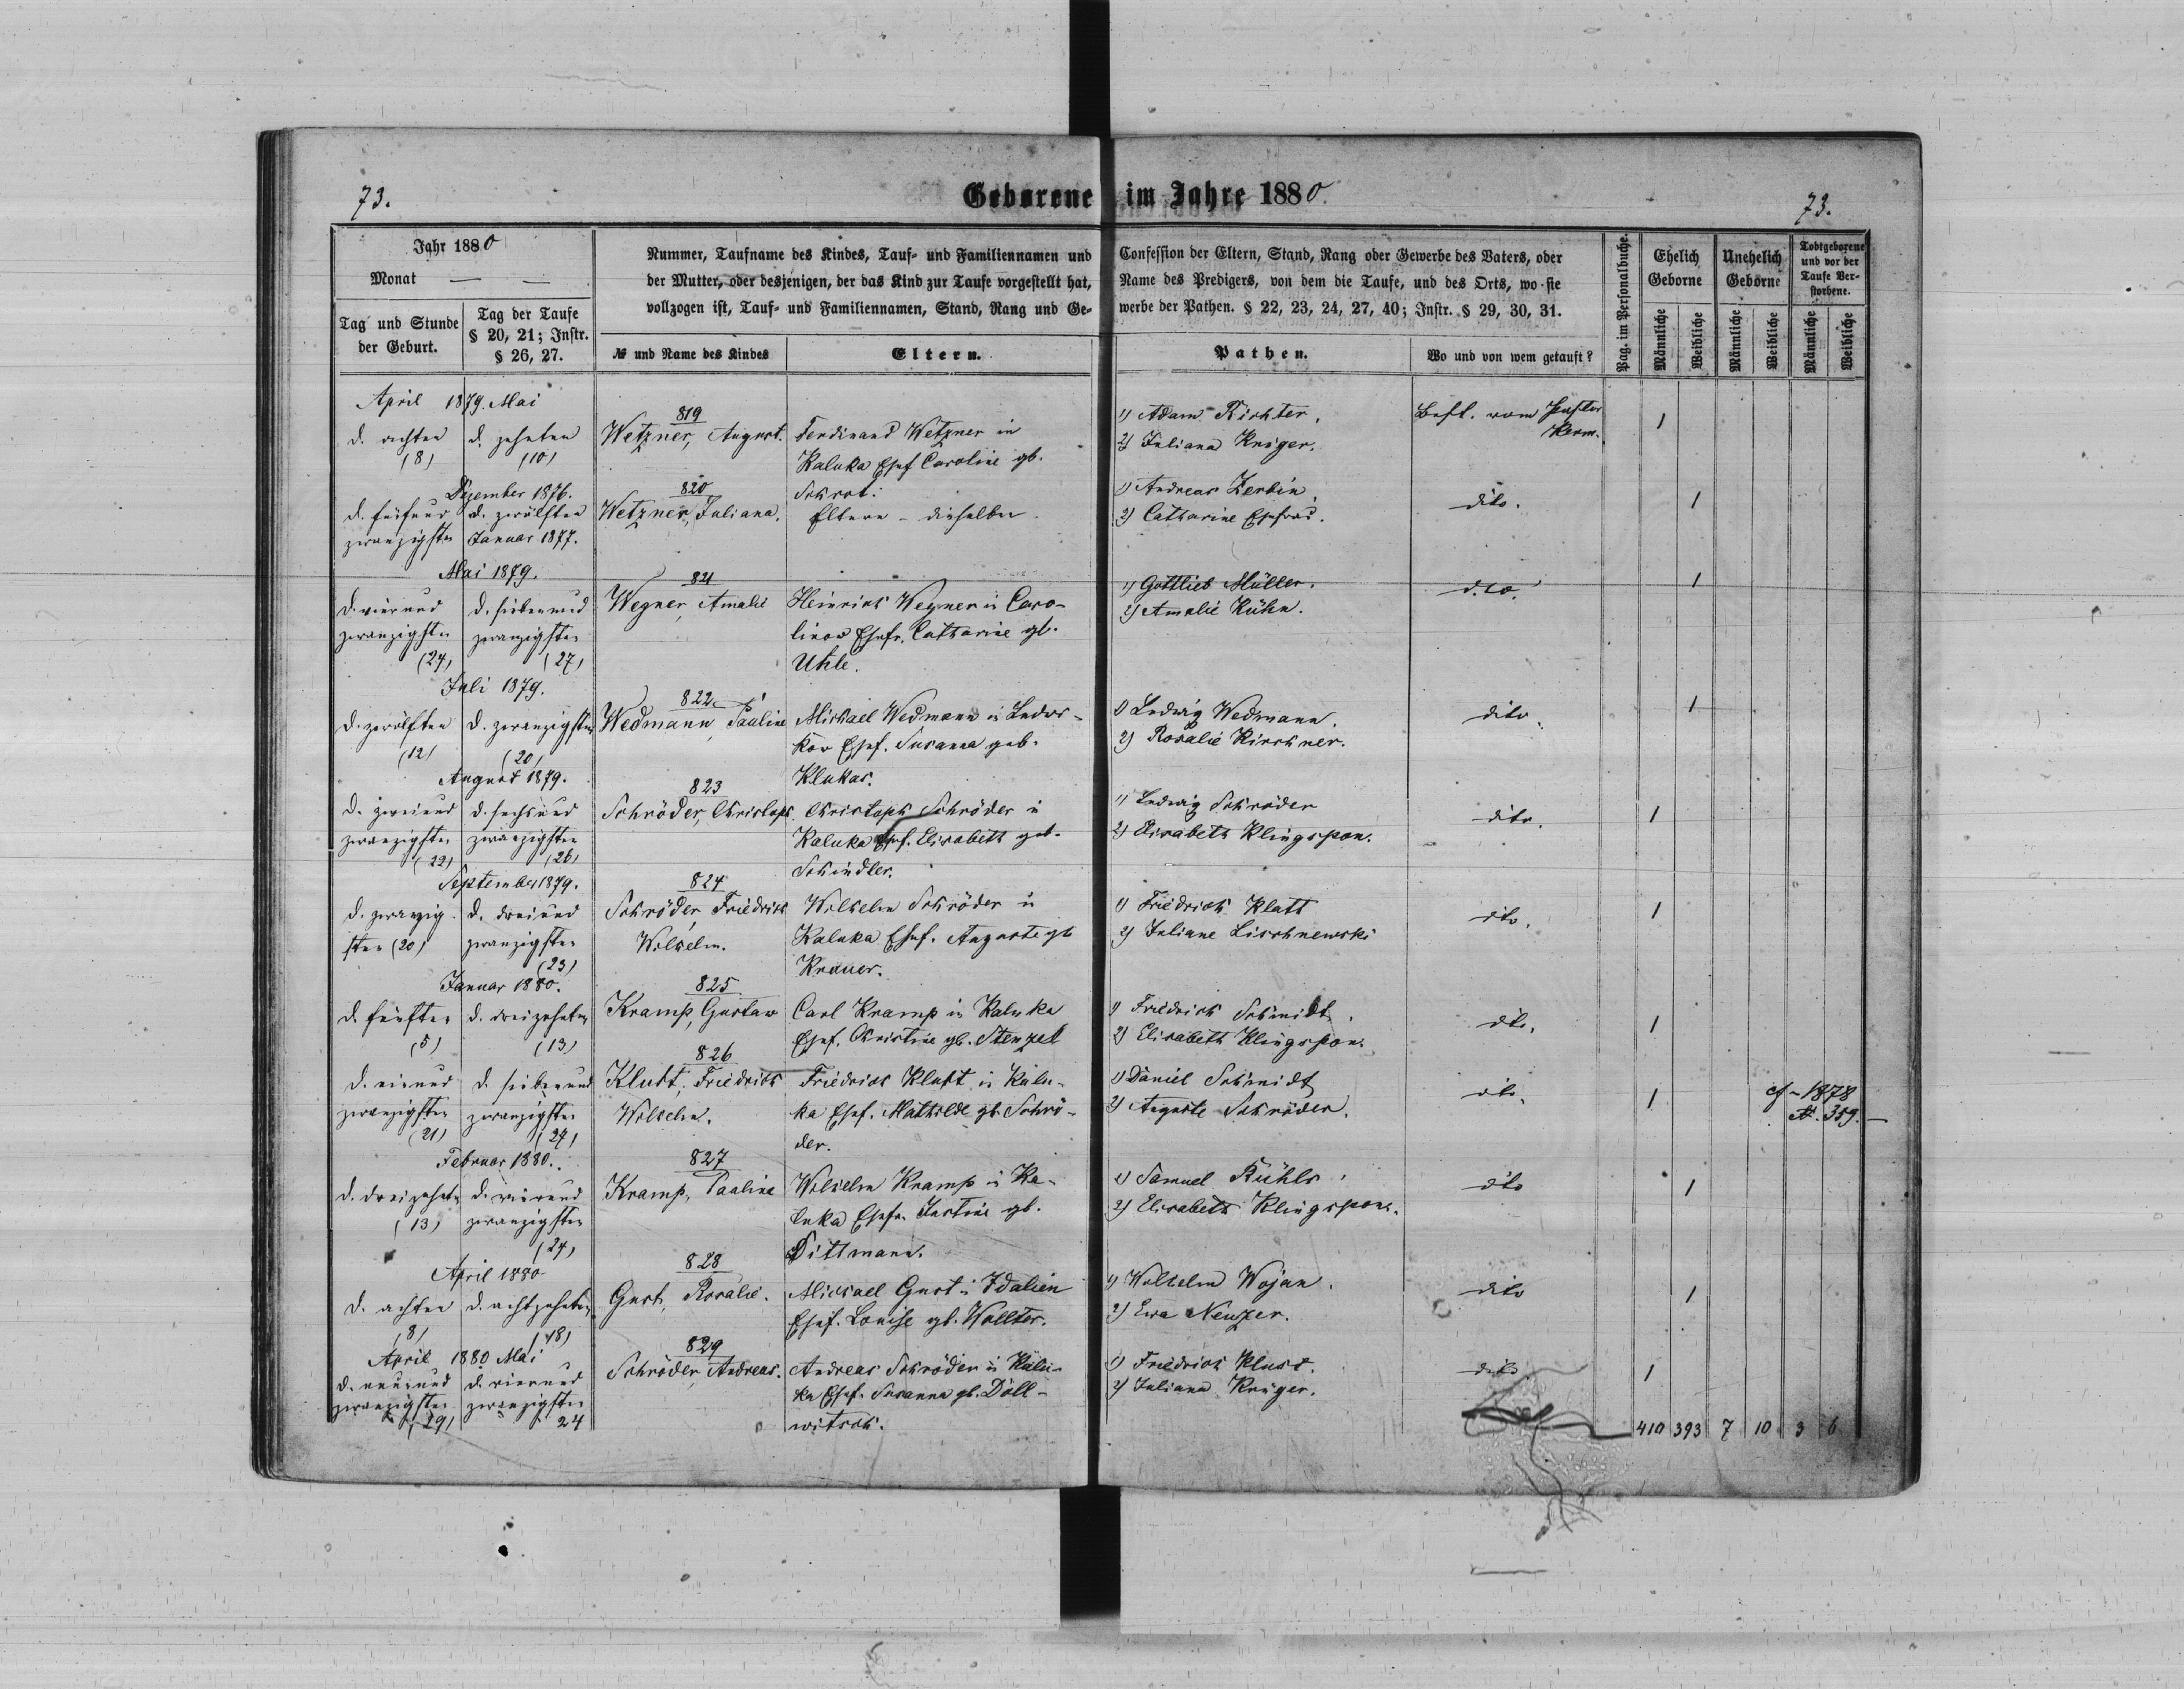 73.
Geborene im Jahre 1880.
73.
Jahr 1880
Monat — —
Tag und Stunde der Geburt.
Tag der Taufe § 20, 21; Instr. § 26, 27.
Nummer, Taufname des Kindes, Tauf- und Familiennamen und
der Mutter, oder desjenigen, der das Kind zur Taufe vorgestellt hat,
vollzogen ist, Tauf- und Familiennamen, Stand, Rang und Ge-
№ und Name des Kindes
Eltern.
Confession der Eltern, Stand, Rang oder Gewerbe des Vaters, oder
Name des Predigers, von dem die Taufe, und des Orts, wo sie
werbe der Pathen. § 22, 23, 24, 27, 40; Instr. § 29, 30, 31.
Pathen.
Wo und von wem getauft?
Pag. im Personalbuche.
Ehelich Geborne
Unehelich Geborne
Todtgeborene und vor der Taufe Verstorbene.
Männliche
Weibliche
Männliche
Weibliche
Männliche
Weibliche
April 1879. Mai
d. achten (8)
d. zehnten (10)
819
Wetzner, August.
Ferdinand Wetzner in
Kaluka Ehef Caroline gb.
Schrot.
1) Adam Richter.
2) Juliana Krüger.
Best. vom
1
Dezember 1876.
d. fünfund
zwanzigsten
d. zwölften
Januar 1877.
820
Wetzner, Juliana.
Eltern – dieselben
1) Andreas Zerbin
2) Catharine Ehefrau.
dito.
1
Mai 1879.
d. vierund
zwanzigsten
(24)
d. siebenund
zwanzigsten
(27)
821
Wegner, Amalie
Heinrich Wegner in Caro-
linow Ehefr. Catharine gb.
Uhle.
1) Gottlieb Müller.
2) Amalie Kühn.
d.to.
1
Juli 1879.
d. zwölften
(12)
d. zwanzigsten
(20)
822
Wedmann, Pauline
Michael Wedmann in Ludwi-
kow Ehef. Susanna geb.
Klukas.
1) Ludwig Wedmann.
2) Rosalie Kirschner.
dito.
1
August 1879.
d. zweiund
zwanzigsten
(22)
d. sechsund
zwanzigsten
(26)
823
Schröder, Christoph.
Christoph Schröder in
Kaluka Ehef. Elisabeth geb.
Schindler.
1) Ludwig Schröder
2) Elisabeth Klingspon.
dito.
1
September 1879.
d. zwanzig-
sten (20)
d. dreiund
zwanzigsten
(23)
824
Schröder, Friedrich
Wilhelm.
Wilhelm Schröder in
Kaluka Ehef. Auguste gb
Krauer.
1) Friedrich Klatt
2) Juliane Lischnewski
dito.
1
Januar 1880.
d. fünften
(5)
d. dreizehnten
(13)
825
Kramp, Gustav
Carl Kramp in Kaluka
Ehef. Christine gb. Stenzel
1) Friedrich Schmidt.
2) Elisabeth Klingspon.
dito.
1
d. einund
zwanzigsten
(21)
d. siebenund
zwanzigsten
(27)
826
Klutt, Friedrich
Wilhelm.
Friedrich Klutt in Kalu-
ka Ehef. Mathilde gb. Schrö-
der.
1) Daniel Schmidt
2) Auguste Schröder.
dito.
1
cf. 1878
№. 359.
Februar 1880.
d. dreizehnten
(13)
d. vierund
zwanzigsten
(24)
827
Kramp, Pauline
Wilhelm Kramp in Ka-
luka Ehefr. Justine gb.
Dittmann.
1) Samuel Kühls.
2) Elisabeth Klingspon.
dito
1
April 1880
d. achten
(8)
d. achtzehnten
(18)
828
Gust, Rosalie.
Michael Gust in Idalien
Ehef. Louise gb. Wollter.
1) Wilhelm Wojan.
2) Ewa Neuzer.
dito
1
April 1880 Mai
d. neunund
zwanzigsten
(29)
d. vierund
zwanzigsten
24
829
Schröder, Andreas.
Andreas Schröder in Kalu-
ka Ehef. Susanna gb. Döll-
witsch.
1) Friedrich Klust.
2) Juliana Krüger.
dito
1
410 393 7 10 3 6